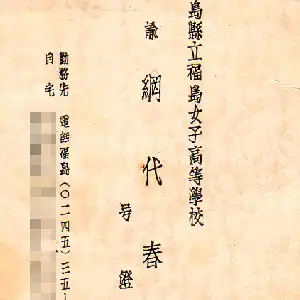 島縣立福島女子高等學校
諭 網代春
号澄
勤務先 電話福島(〇二四五)三五
自宅